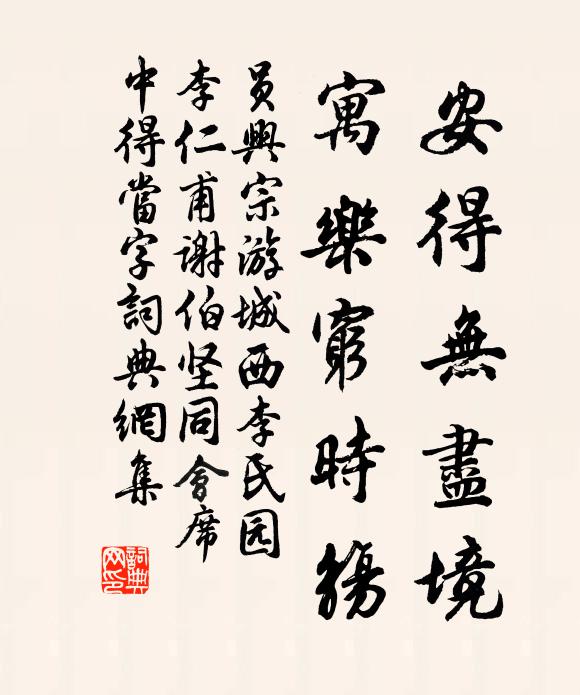 安得無盡境
寓樂窮時觴
員興宗游城西李氏园
李仁甫謝伯坚同會席
中得當字詞典網集
詞典网印